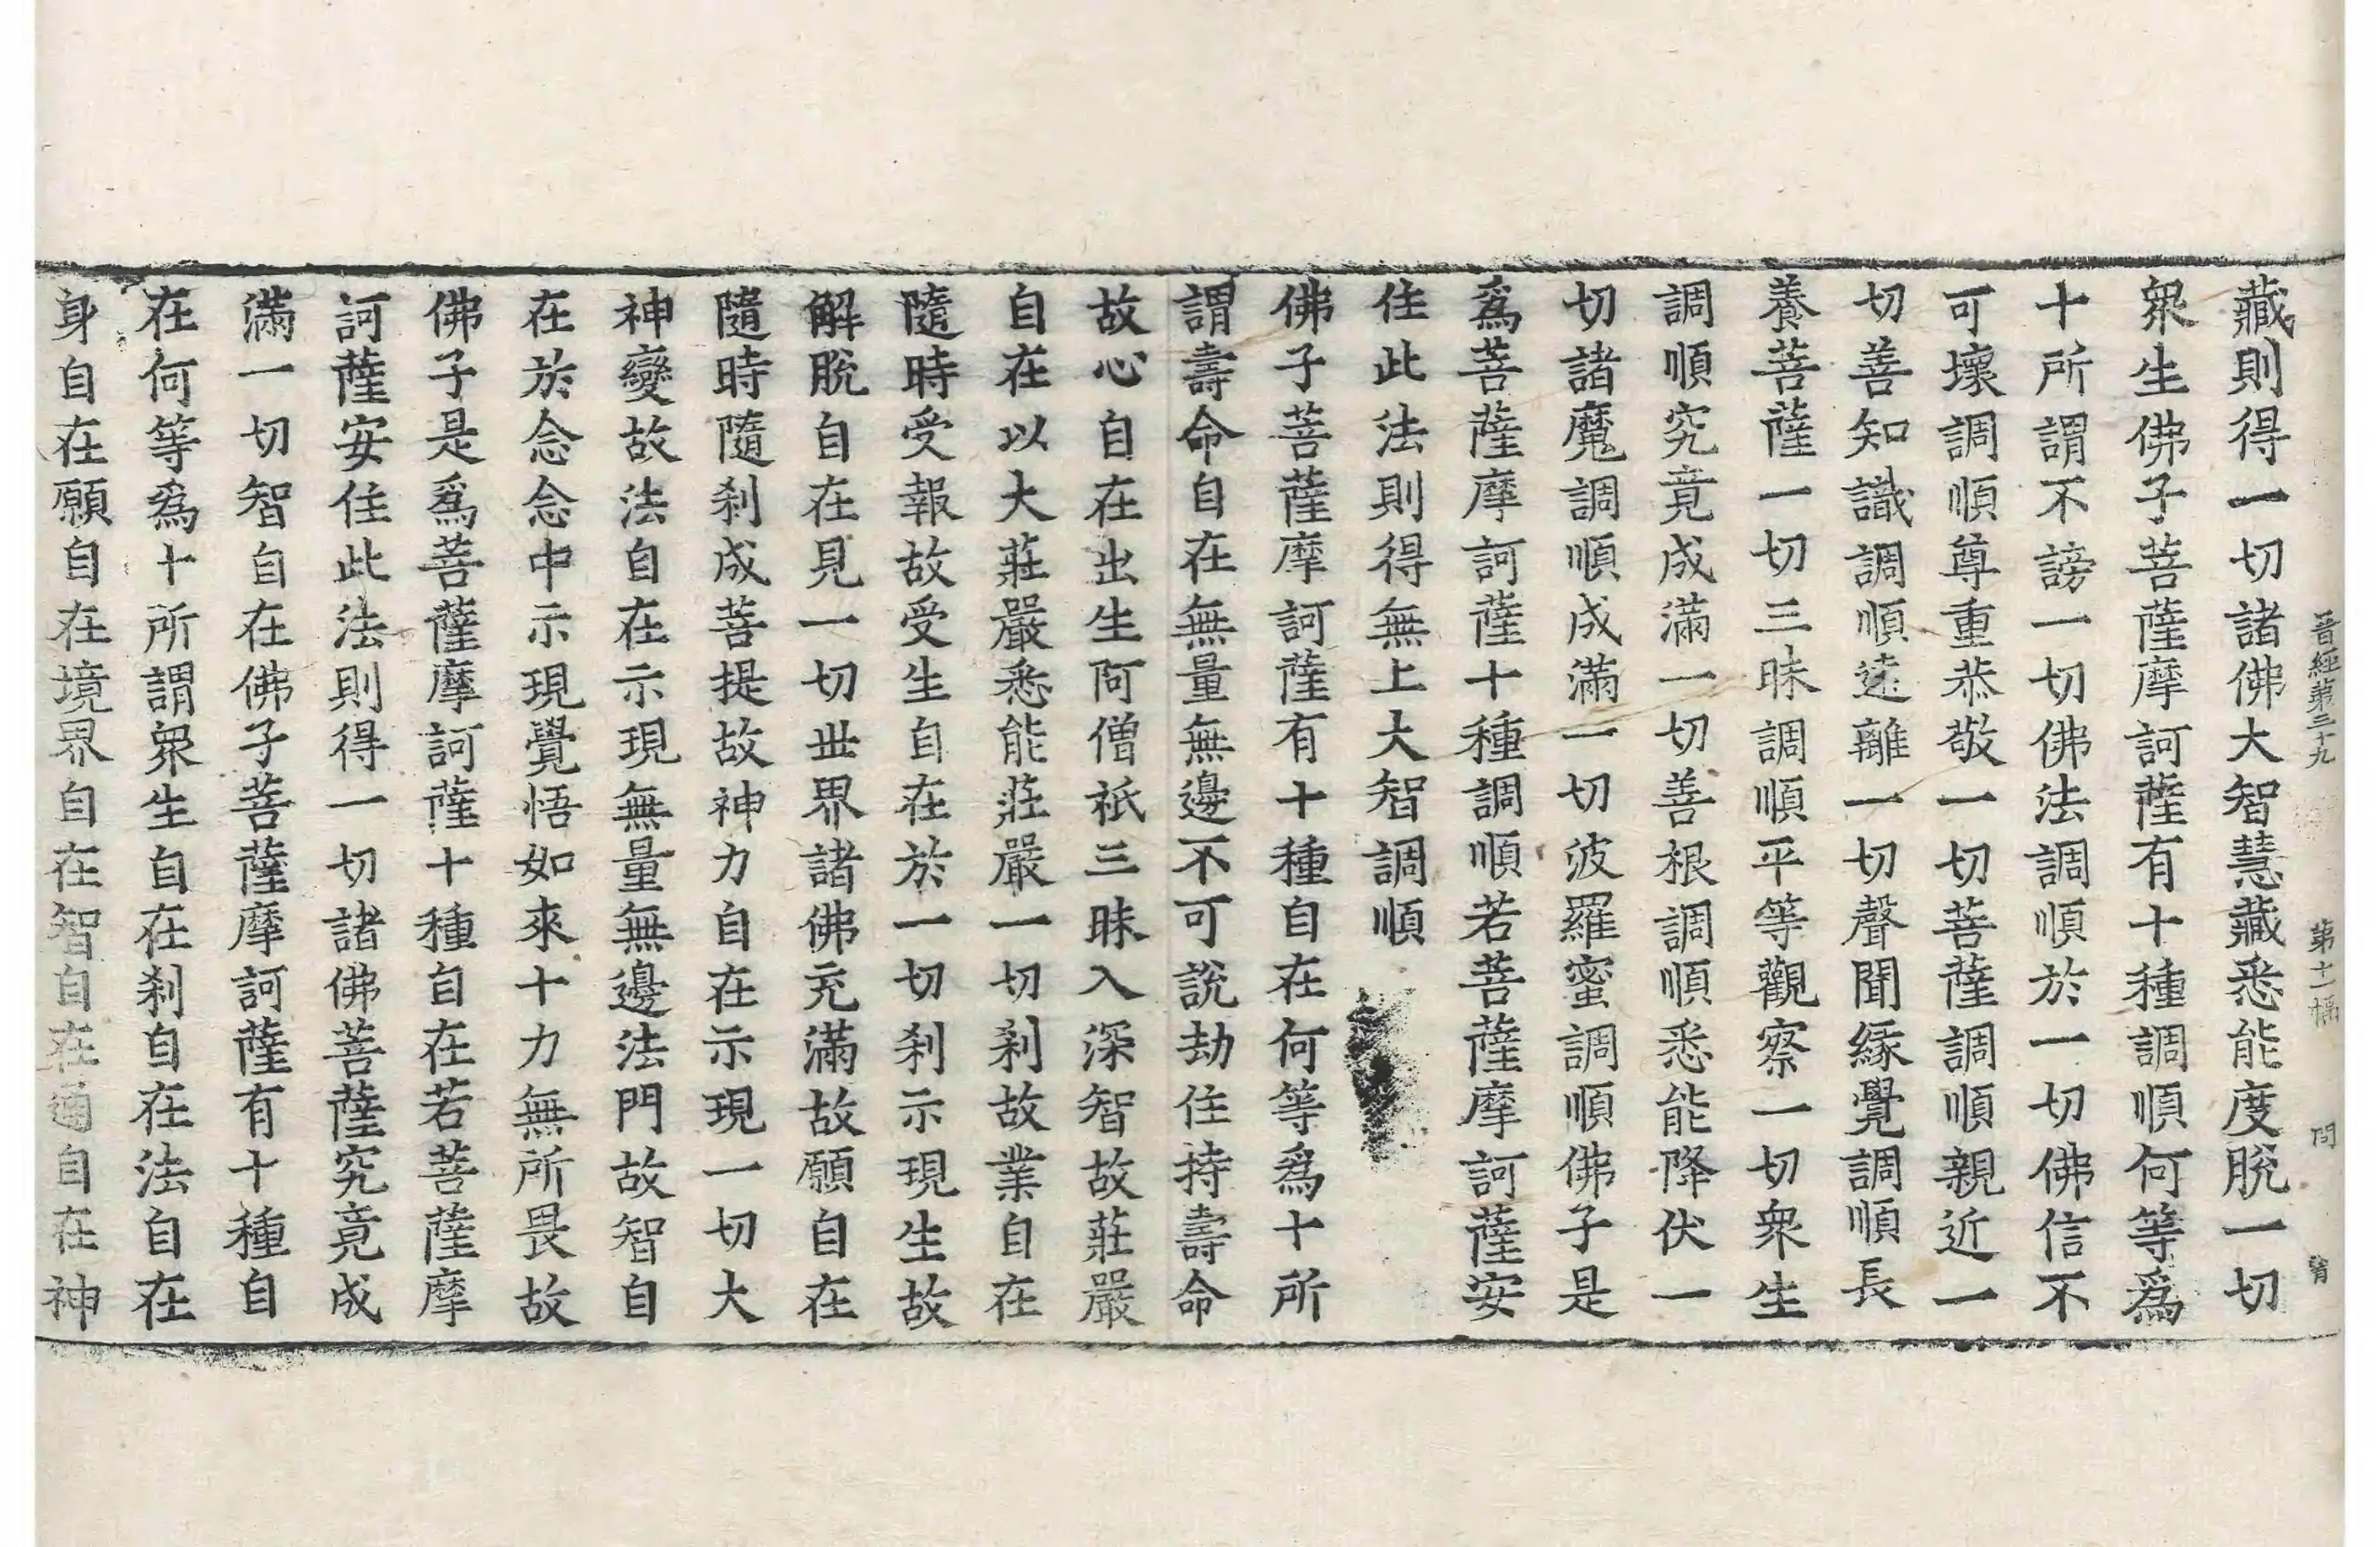 晉經第三十九 第十一幅 問
藏則得一切諸佛大智慧藏悉能度脫一切
衆生佛子菩薩摩訶薩有十種調順何等爲
十所謂不謗一切佛法調順於一切佛信不
可壞調順尊重恭敬一切菩薩調順親近一
切善知識調順遠離一切聲聞緣覺調順長
養菩薩一切三昧調順平等觀察一切衆生
調順究竟成滿一切善根調順悉能降伏一
切諸魔調順成滿一切波羅蜜調順佛子是
爲菩薩摩訶薩十種調順若菩薩摩訶薩安
住此法則得無上大智調順
佛子菩薩摩訶薩有十種自在何等爲十所
謂壽命自在無量無邊不可說劫住持壽命
故心自在出生阿僧祇三昧入深智故莊嚴
自在以大莊嚴悉能莊嚴一切刹故業自在
隨時受報故受生自在於一切刹示現生故
解脫自在見一切世界諸佛充滿故願自在
隨時隨刹成菩提故神力自在示現一切大
神變故法自在示現無量無邊法門故智自
在於念念中示現覺悟如來十力無所畏故
佛子是爲菩薩摩訶薩十種自在若菩薩摩
訶薩安住此法則得一切諸佛菩薩究竟成
滿一切智自在佛子菩薩摩訶薩有十種自
在何等爲十所謂衆生自在刹自在法自在
身自在願自在境界自在智自在通自在神